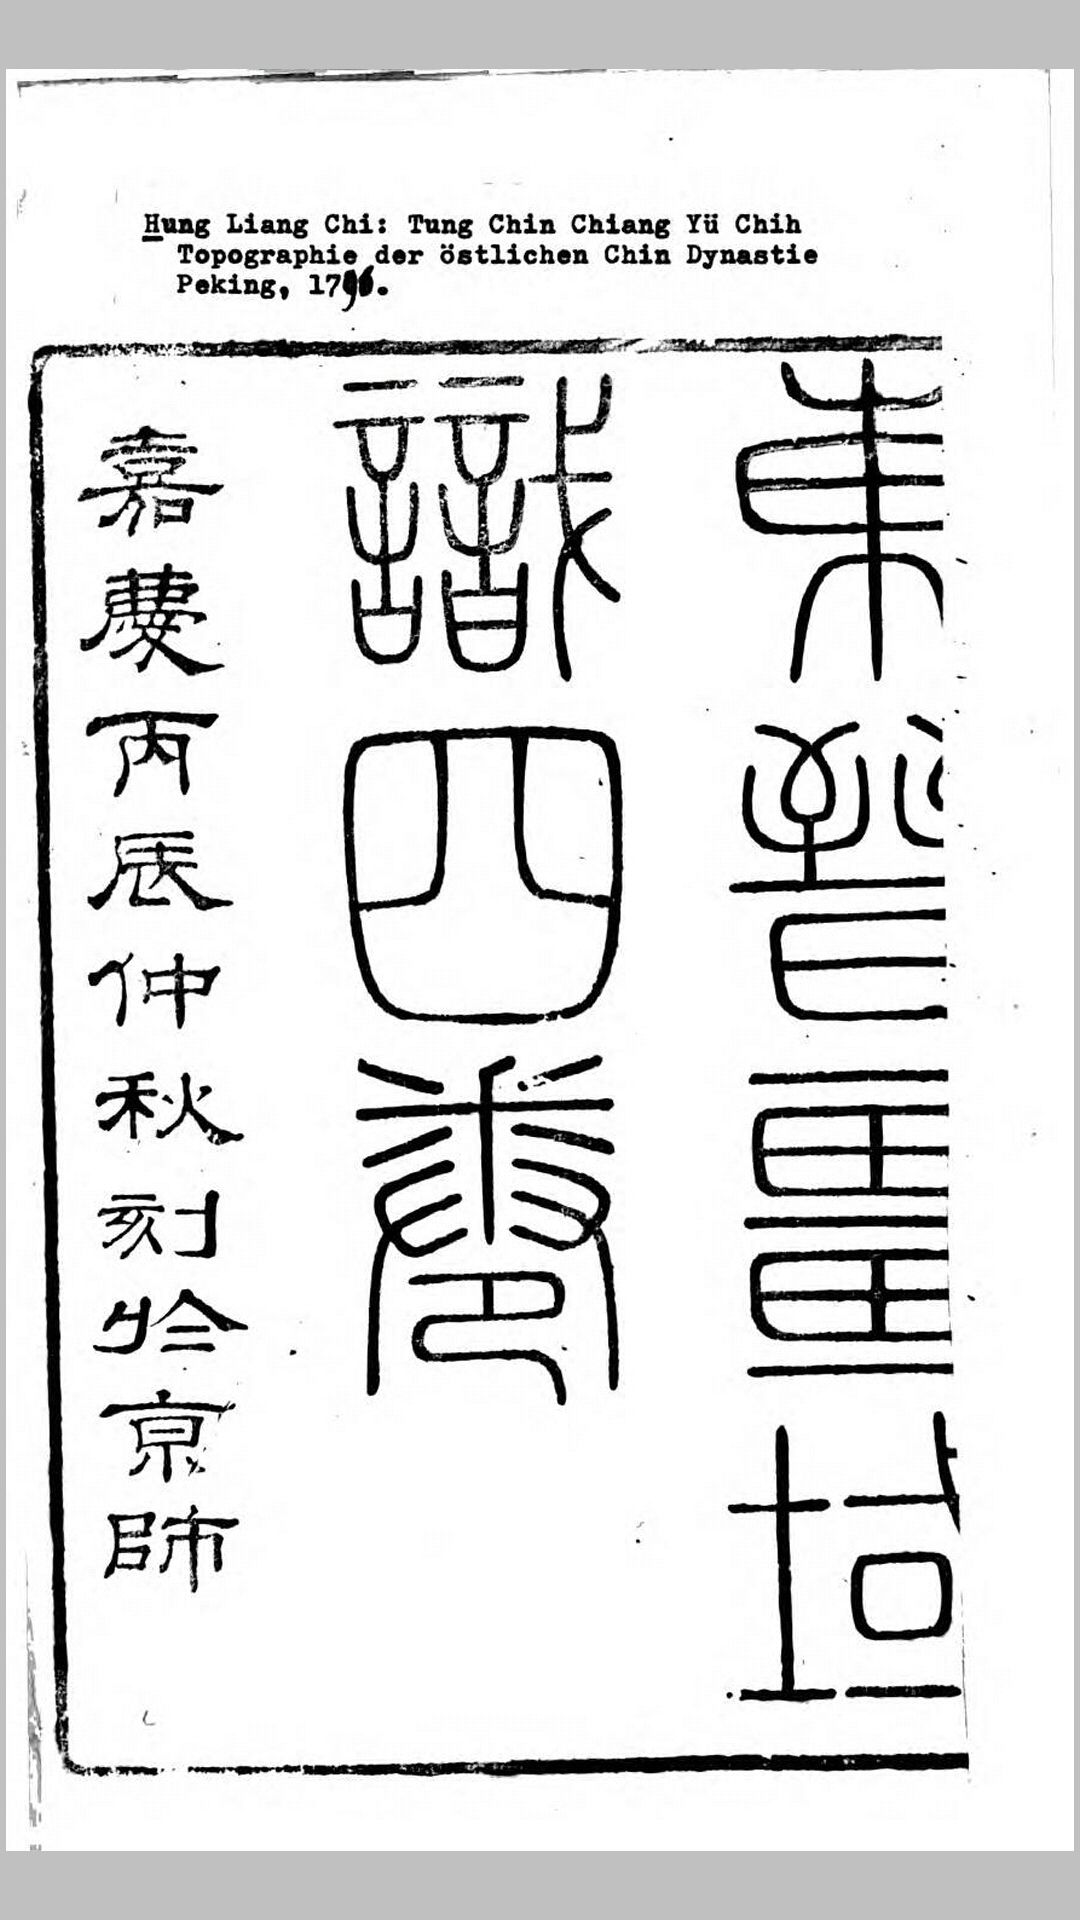 Hung Liang Chi: Tung Chin Chiang Yü Chih
Topographie der östlichen Chin Dynastie
Peking, 1796.
東晉畺域
識四卷
嘉慶丙辰仲秋刻於京師